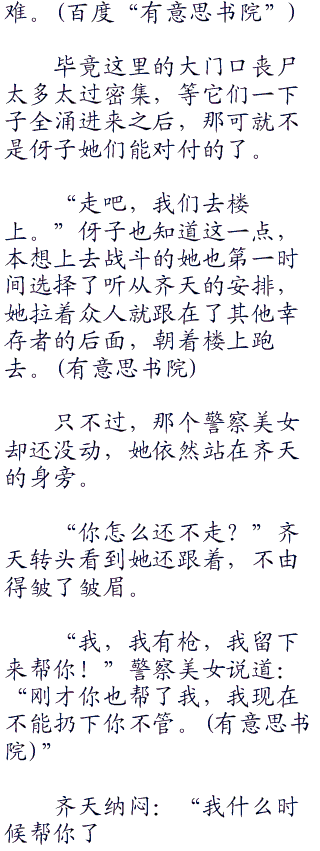 难。(百度“有意思书院”)
毕竟这里的大门口丧尸
太多太过密集，等它们一下
子全涌进来之后，那可就不
是伢子她们能对付的了。
“走吧，我们去楼
上。”伢子也知道这一点，
本想上去战斗的她也第一时
间选择了听从齐天的安排，
她拉着众人就跟在了其他幸
存者的后面，朝着楼上跑
去。(有意思书院)
只不过，那个警察美女
却还没动，她依然站在齐天
的身旁。
“你怎么还不走？”齐
天转头看到她还跟着，不由
得皱了皱眉。
“我，我有枪，我留下
来帮你！”警察美女说道：
“刚才你也帮了我，我现在
不能扔下你不管。(有意思书
院)”
齐天纳闷：“我什么时
候帮你了